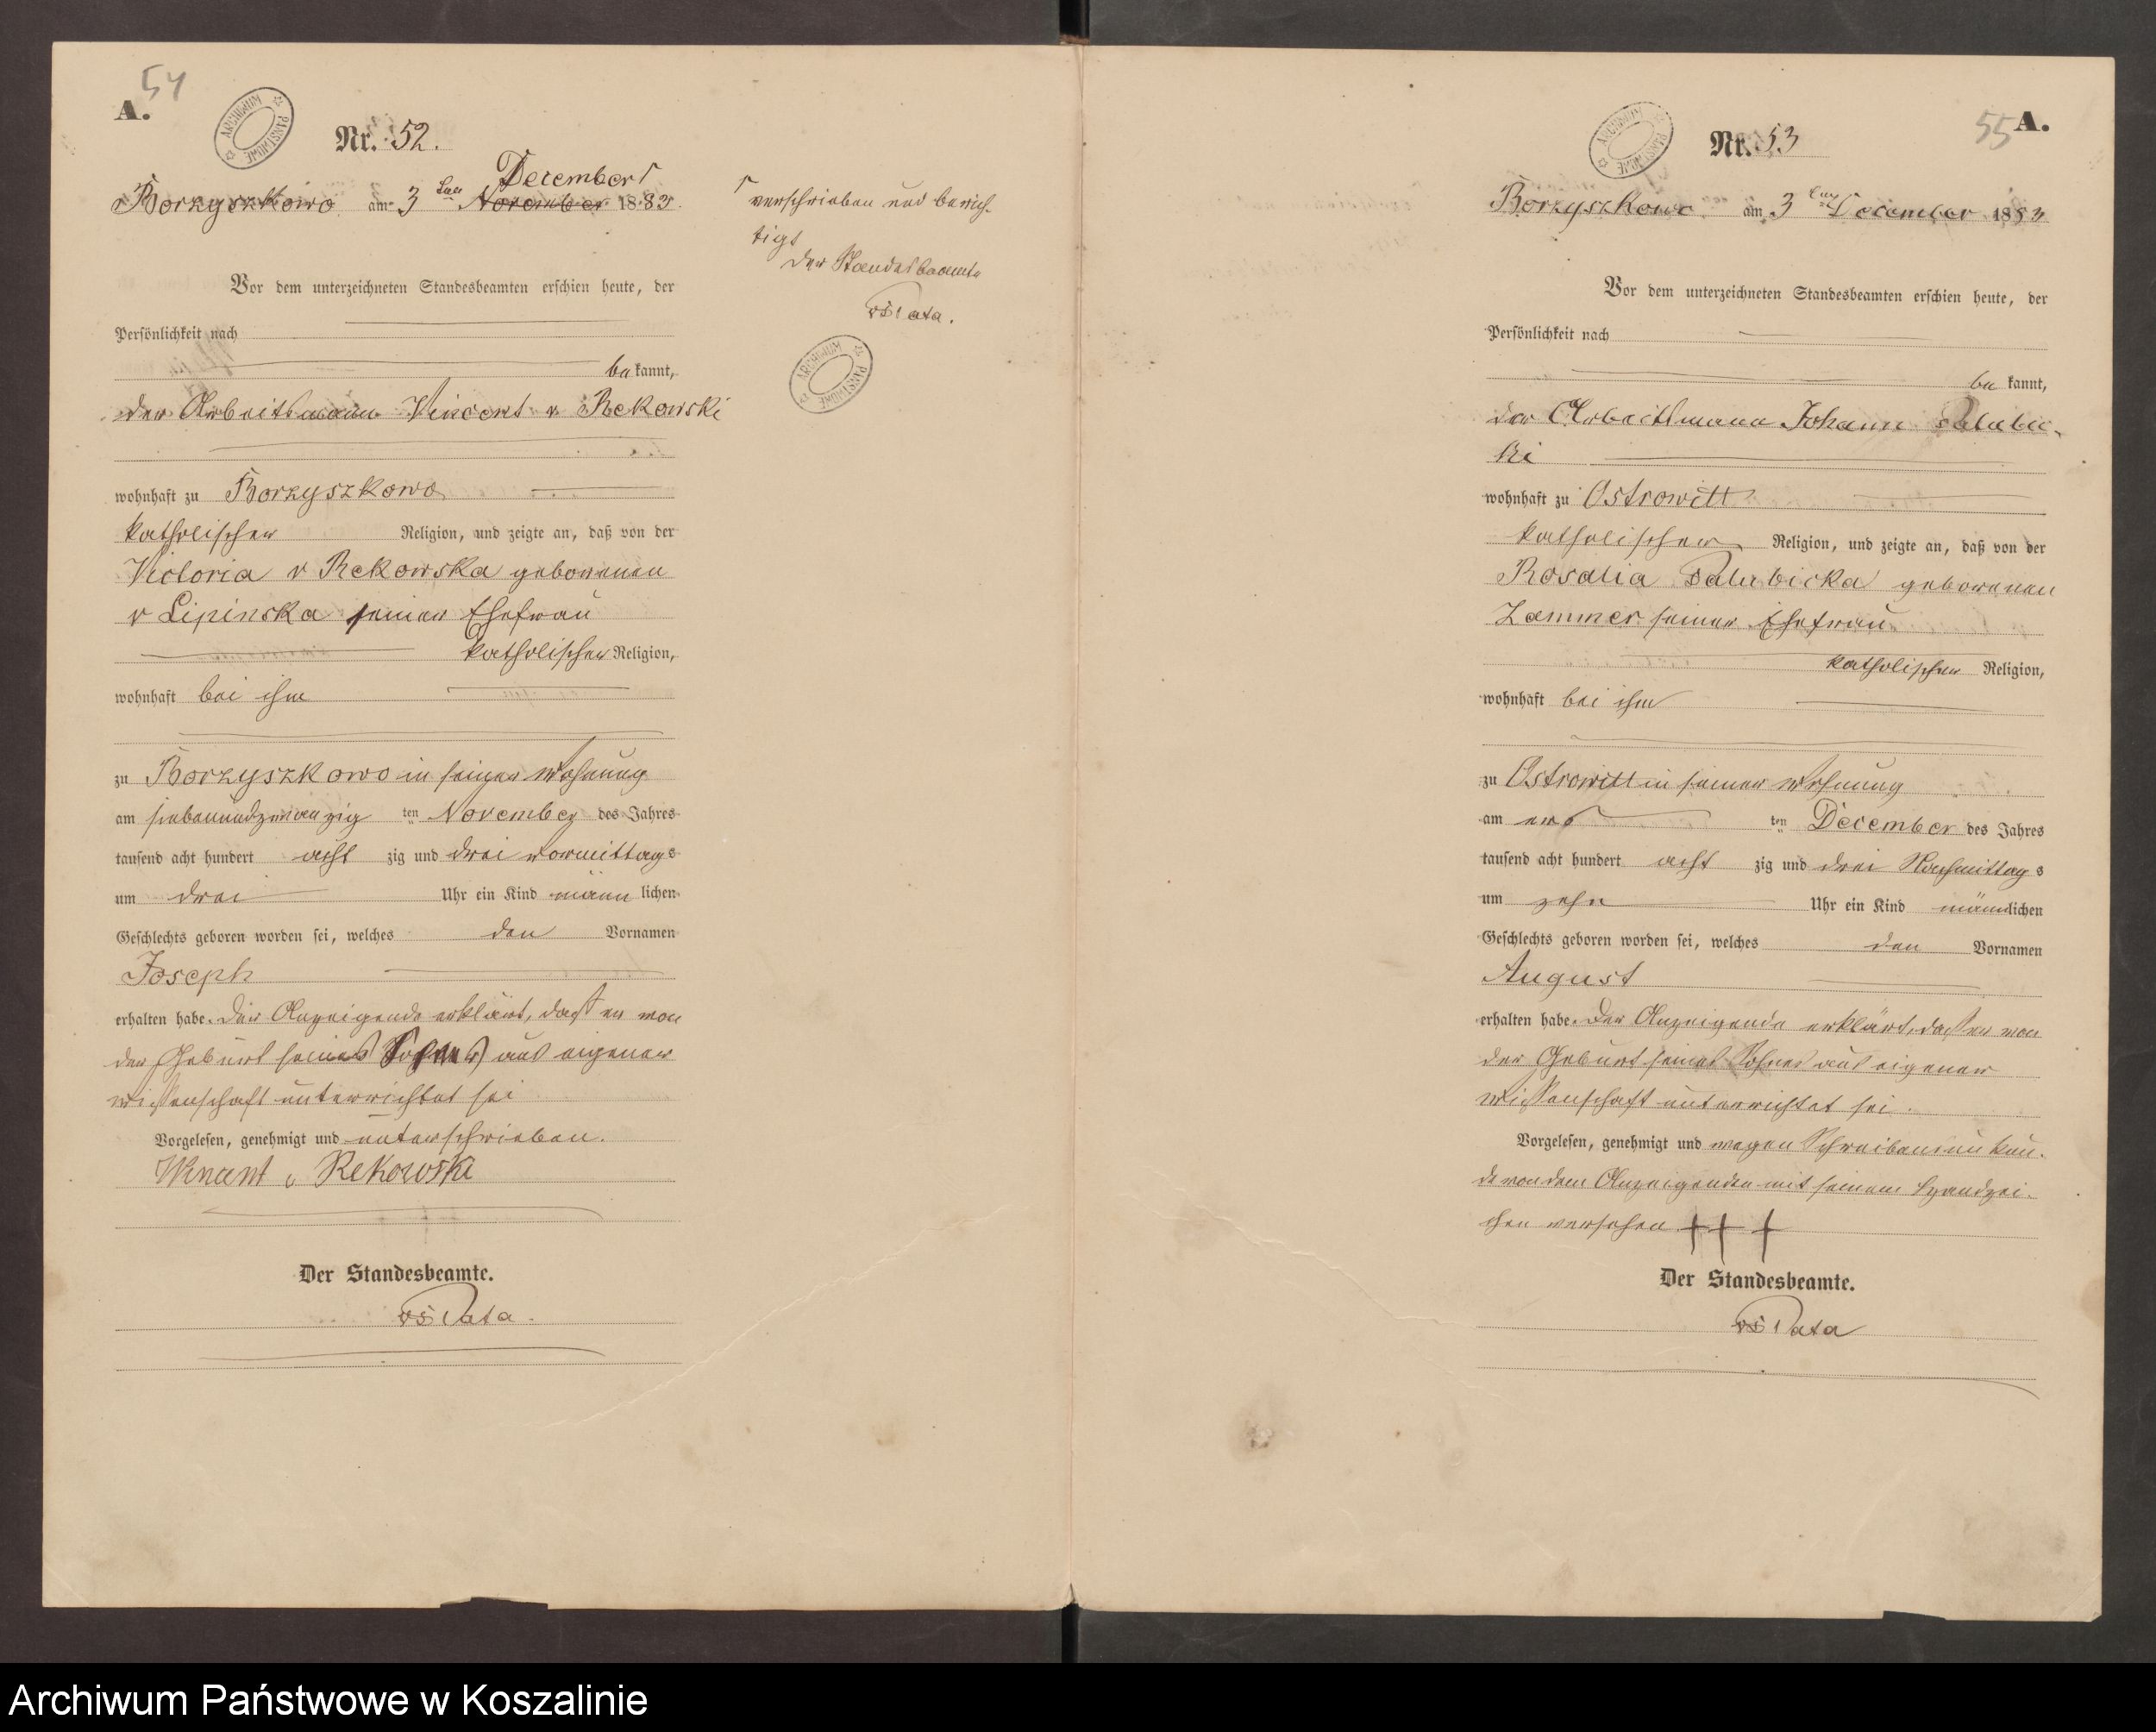 54
A.
ARCHIWUM PAŃSTWOWE
Nr. 52.
December ⌈
Borzyszkowo am 3 ten November 1883.
Vor dem unterzeichneten Standesbeamten erschien heute, der
Persönlichkeit nach
be kannt,
der Arbeitsmann Vincent v Rekowski
wohnhaft zu Borzyszkowo
katholischer Religion, und zeigte an, daß von der
Victoria v Rekowska geborenen
v Lipinska seiner Ehefrau
katholischer Religion,
wohnhaft bei ihm
zu Borzyszkowo in seiner Wohnung
am siebenundzwanzig ten November des Jahres
tausend acht hundert acht zig und drei Vormittags
um drei Uhr ein Kind männ lichen
Geschlechts geboren worden sei, welches den Vornamen
Joseph
erhalten habe. Der Anzeigende erklärt, daß er von
der Geburt seines Sohnes aus eigener
Wissenschaft unterrichtet sei
Vorgelesen, genehmigt und unterschrieben.
v Rekowski
Der Standesbeamte.
⌈ verschrieben und berich-
tigt
Der Standesbeamte
ARCHIWUM PAŃSTWOWE
55 A.
ARCHIWUM PAŃSTWOWE
Nr. 53
Borzyszkowo am 3 ten December 1883
Vor dem unterzeichneten Standesbeamten erschien heute, der
Persönlichkeit nach
be kannt,
der Arbeitsmann Johann Palubic-
ki
wohnhaft zu Ostrowitt
katholischer Religion, und zeigte an, daß von der
Rosalia Palubicka geborenen
Zammer seiner Ehefrau
katholischer Religion,
wohnhaft bei ihm
zu Ostrowitt in seiner Wohnung
am ers ten December des Jahres
tausend acht hundert acht zig und drei Nachmittags
um zehn Uhr ein Kind männlichen
Geschlechts geboren worden sei, welches den Vornamen
August
erhalten habe. Der Anzeigende erklärt, daß er von
der Geburt seines Sohnes aus eigener
Wissenschaft unterrichtet sei.
Vorgelesen, genehmigt und wegen Schreibensunkun-
de von dem Anzeigenden mit seinem Handzei-
chen versehen + + +
Der Standesbeamte.
Archiwum Państwowe w Koszalinie